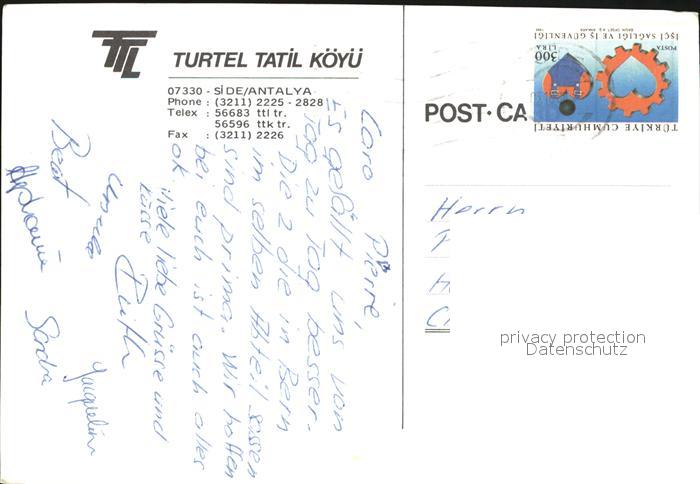 TTL
TURTEL TATİL KÖYÜ
07330 - SİDE/ANTALYA
Phone : (3211) 2225 - 2828
Telex : 56683 ttl tr.
56596 ttk tr.
Fax : (3211) 2226
Caro Pierre,
Es gefällt uns von
Tag zu Tag besser.
Die 2 die in Bern
im selben Abteil sassen
sind prima. Wir hoffen
bei euch ist auch alles
ok. Viele liebe Grüsse und
küsse
Ruth
Beat
Sandra
Jacqueline
POST·CA
İŞÇİ SAĞLIĞI VE İŞ GÜVENLİĞİ
POSTA
300
LİRA
TÜRKİYE CUMHURİYETİ
Herrn
privacy protection
Datenschutz